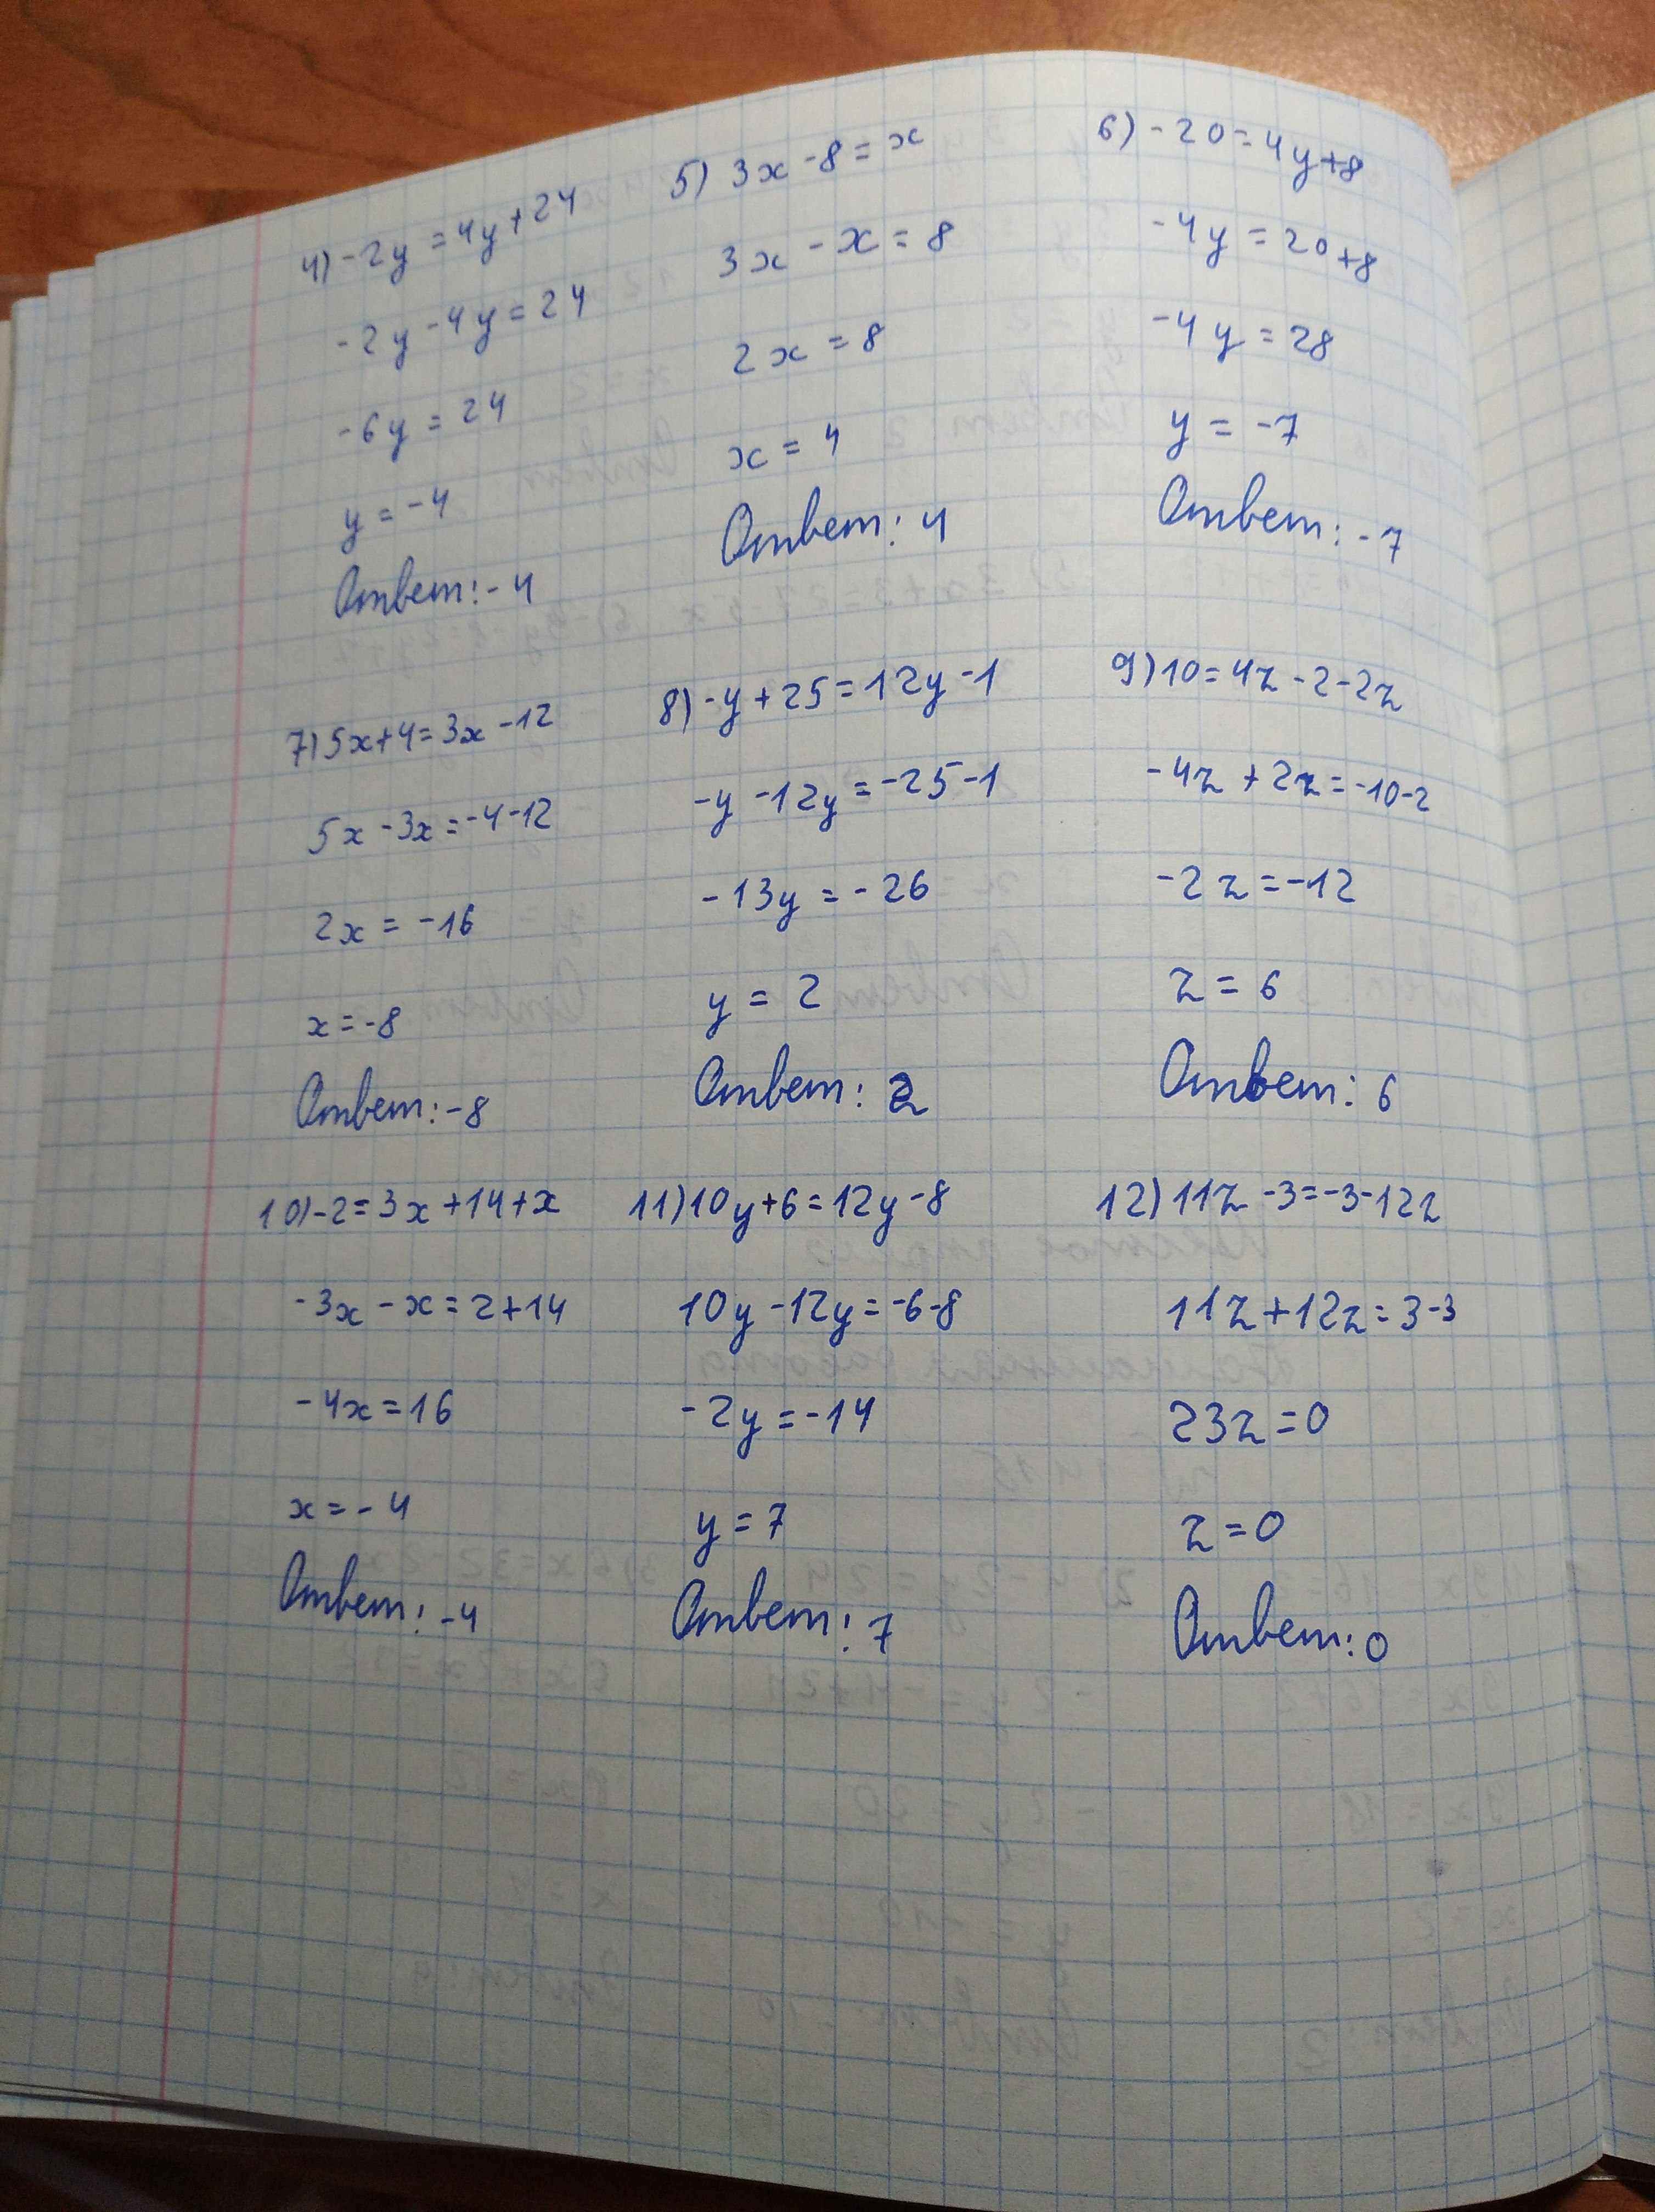 4) -2y = 4y + 24
-2y - 4y = 24
-6y = 24
y = -4
Ответ: -4
5) 3x - 8 = x
3x - x = 8
2x = 8
x = 4
Ответ: 4
6) -20 = 4y + 8
-4y = 20 + 8
-4y = 28
y = -7
Ответ: -7
7) 5x + 4 = 3x - 12
5x - 3x = -4 - 12
2x = -16
x = -8
Ответ: -8
8) -y + 25 = 12y - 1
-y - 12y = -25 - 1
-13y = -26
y = 2
Ответ: 2
9) 10 = 4z - 2 - 2z
-4z + 2z = -10 - 2
-2z = -12
z = 6
Ответ: 6
10) -2 = 3x + 14 + x
-3x - x = 2 + 14
-4x = 16
x = -4
Ответ: -4
11) 10y + 6 = 12y - 8
10y - 12y = -6 - 8
-2y = -14
y = 7
Ответ: 7
12) 11z - 3 = -3 - 12z
11z + 12z = 3 - 3
23z = 0
z = 0
Ответ: 0